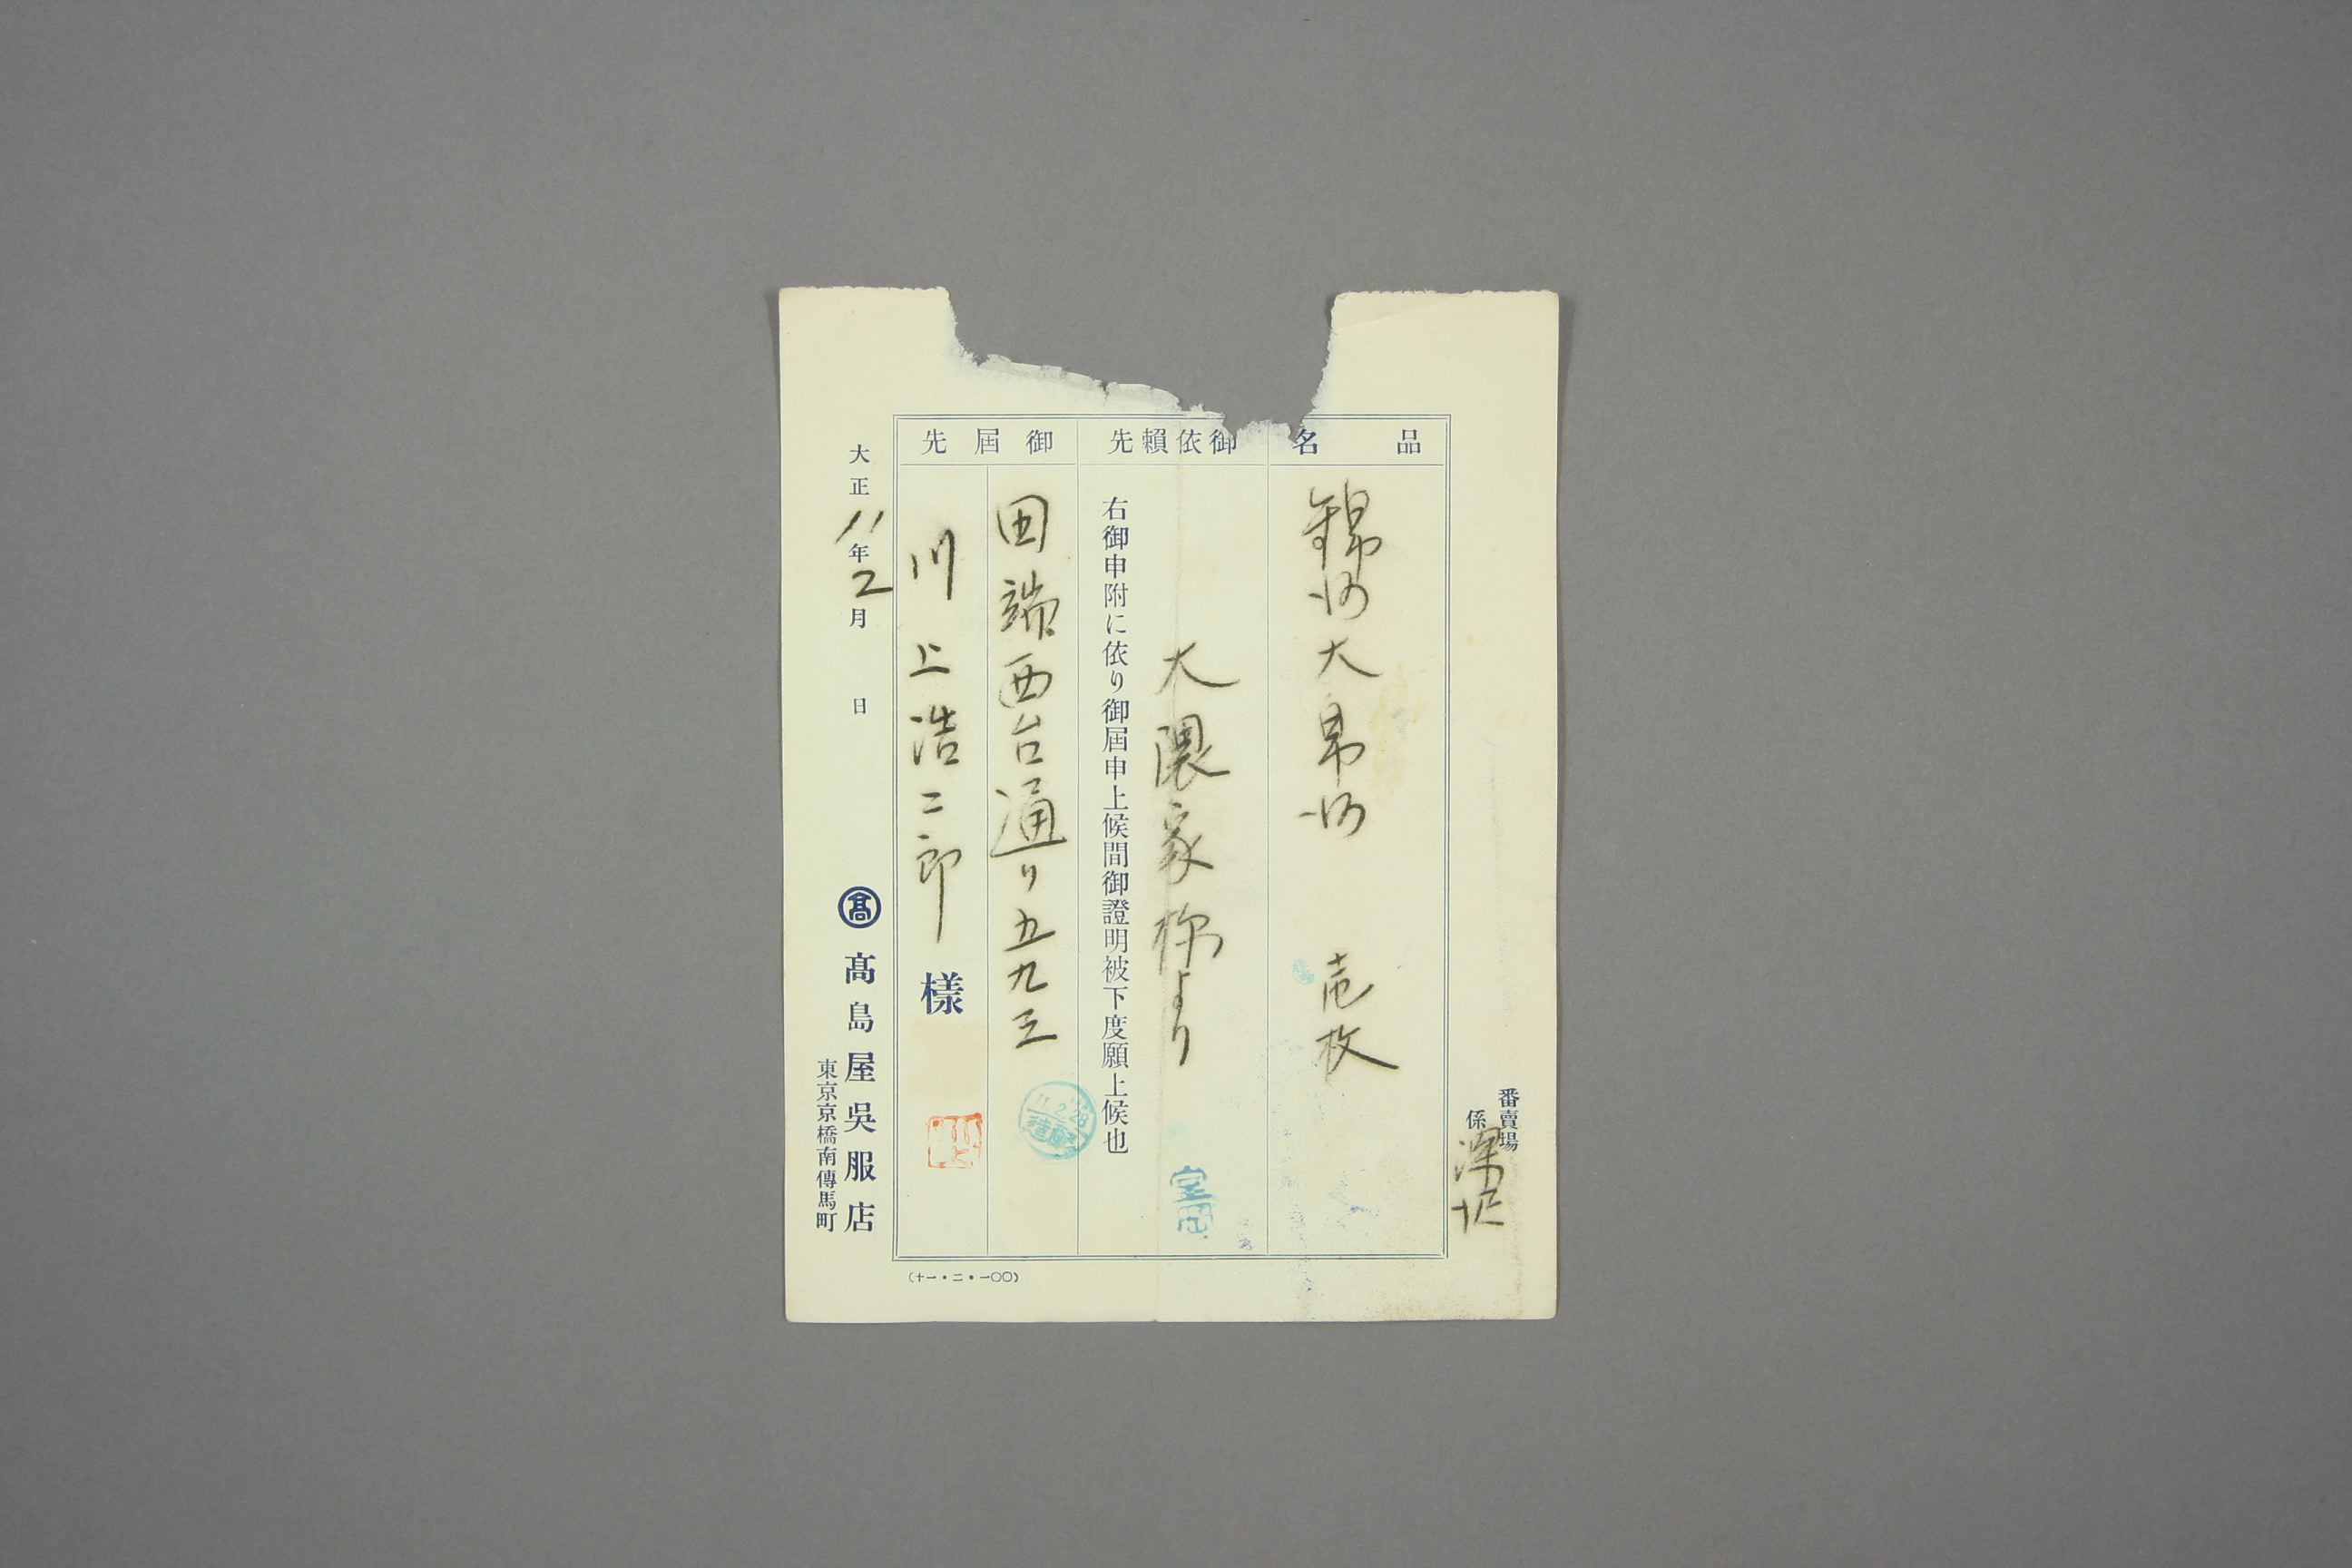 番賣場
係 深沢
品名
錦紗大帛紗 壱枚
御依賴先
大隈家様より
室岡
右御申附に依り御屆申上候間御證明被下度願上候也
御屆先
田端西台通り五九三
川上浩二郎 様
川上
11.2.28
大正11年2月 日
髙 髙島屋吳服店
東京京橋南傳馬町
(十一・二・一〇〇)